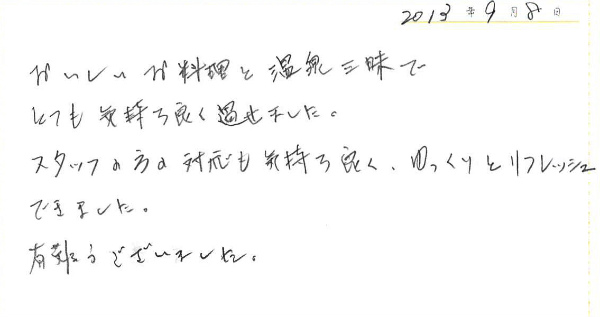 2013年9月8日
おいしいお料理と温泉三昧で
とても気持ち良く過せました。
スタッフの方の対応も気持ち良く、ゆっくりとリフレッシュ
できました。
有難うございました。